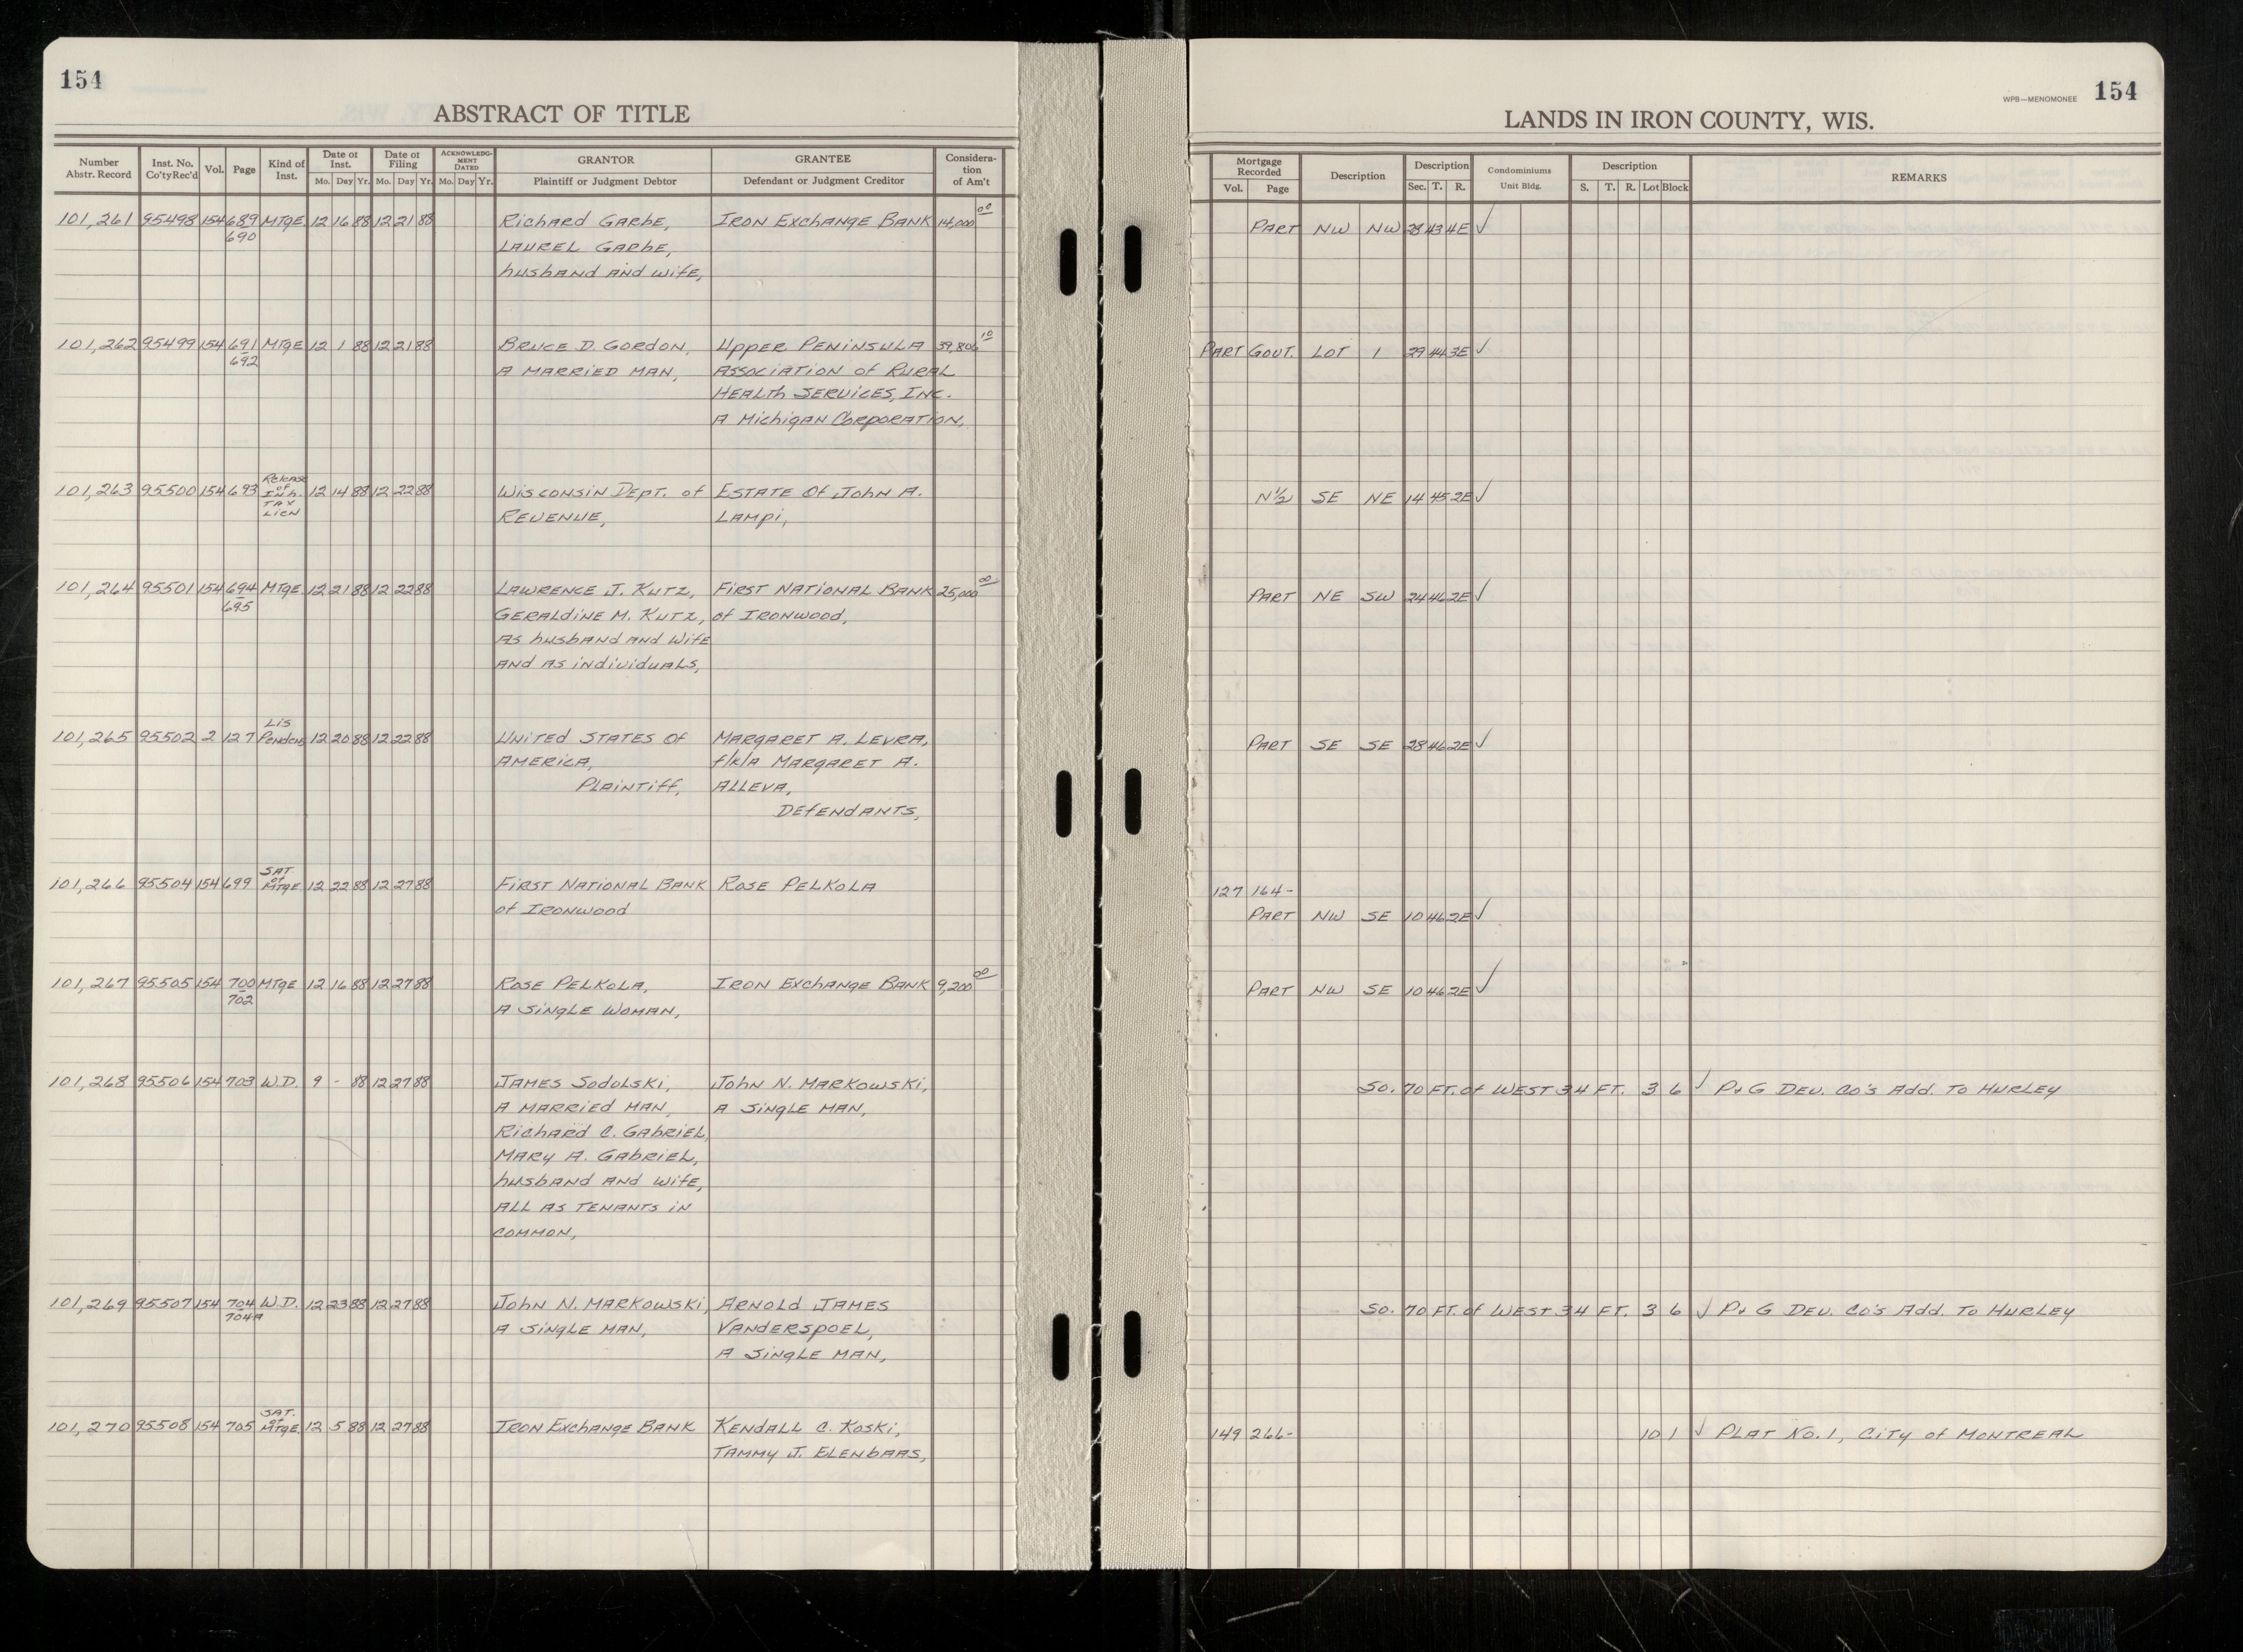 154
ABSTRACT OF TITLE
Number Abstr. Record | Inst. No. Co'ty Rec'd | Vol. | Page | Kind of Inst. | Date of Inst. Mo. Day Yr. | Date of Filing Mo. Day Yr. | ACKNOWLEDGMENT DATED Mo. Day Yr. | GRANTOR Plaintiff or Judgment Debtor | GRANTEE Defendant or Judgment Creditor | Considera-tion of Am't
101,261 95498 154 689 MTGE 12 16 88 12 21 88 Richard Garbe, Iron Exchange Bank 14,000 00
690 Laurel Garbe,
husband and wife,
101,262 95499 154 691 MTGE 12 1 88 12 21 88 Bruce D. Gordon, Upper Peninsula 39,806 10
692 A married man, Association of Rural
Health Services, Inc.
A Michigan Corporation,
101,263 95500 154 693 Release of Inh. Tax Lien 12 14 88 12 22 88 Wisconsin Dept. of Estate of John A.
Revenue, Lampi,
101,264 95501 154 694 MTGE 12 21 88 12 22 88 Lawrence J. Kutz, First National Bank 25,000 00
695 Geraldine M. Kutz, of Ironwood,
as husband and wife
and as individuals,
101,265 95502 2 127 Lis Pendens 12 20 88 12 22 88 United States of Margaret A. Levra,
America, f/k/a Margaret A.
Plaintiff, Alleva,
Defendants,
101,266 95504 154 699 Sat. of MTGE 12 22 88 12 27 88 First National Bank Rose Pelkola
of Ironwood
101,267 95505 154 700 MTGE 12 16 88 12 27 88 Rose Pelkola, Iron Exchange Bank 9,200 00
702 A single woman,
101,268 95506 154 703 W.D. 9 - 88 12 27 88 James Sodolski, John N. Markowski,
A married man, A single man,
Richard C. Gabriel,
Mary A. Gabriel,
husband and wife,
all as tenants in
common,
101,269 95507 154 704 W.D. 12 23 88 12 27 88 John N. Markowski, Arnold James
704A A single man, Vanderspoel,
A single man,
101,270 95508 154 705 Sat. of MTGE 12 5 88 12 27 88 Iron Exchange Bank Kendall C. Koski,
Tammy J. Elenbaas,
WPB—MENOMONEE 154
LANDS IN IRON COUNTY, WIS.
Mortgage Recorded Vol. Page | Description | Description Sec. T. R. | Condominiums Unit Bldg. | Description S. T. R. Lot Block | REMARKS
Part NW NW 28 43 4E ✓
Part Govt. Lot 1 29 44 3E ✓
N½ SE NE 14 45 2E ✓
Part NE SW 24 46 2E ✓
Part SE SE 28 46 2E ✓
127 164-
Part NW SE 10 46 2E ✓
Part NW SE 10 46 2E ✓
So. 70 Ft. of West 34 Ft. 3 6 ✓ P & G Dev. Co's Add. To Hurley
So. 70 Ft. of West 34 Ft. 3 6 ✓ P & G Dev. Co's Add. To Hurley
149 266- 10 1 ✓ Plat No. 1, City of Montreal